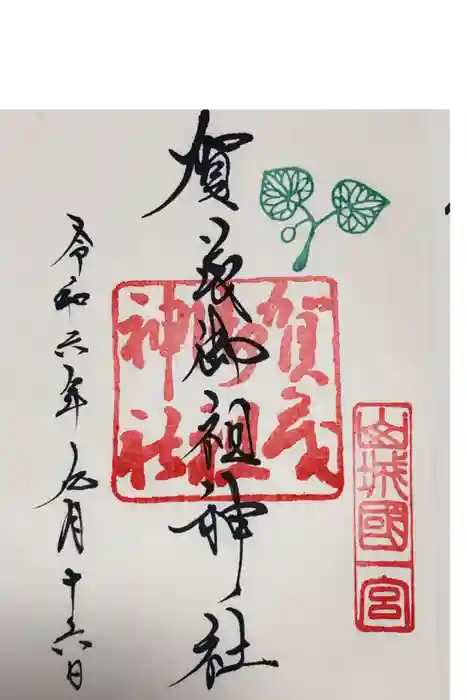 山城國一宮
賀茂御祖神社
賀茂御祖神社
令和六年九月十六日